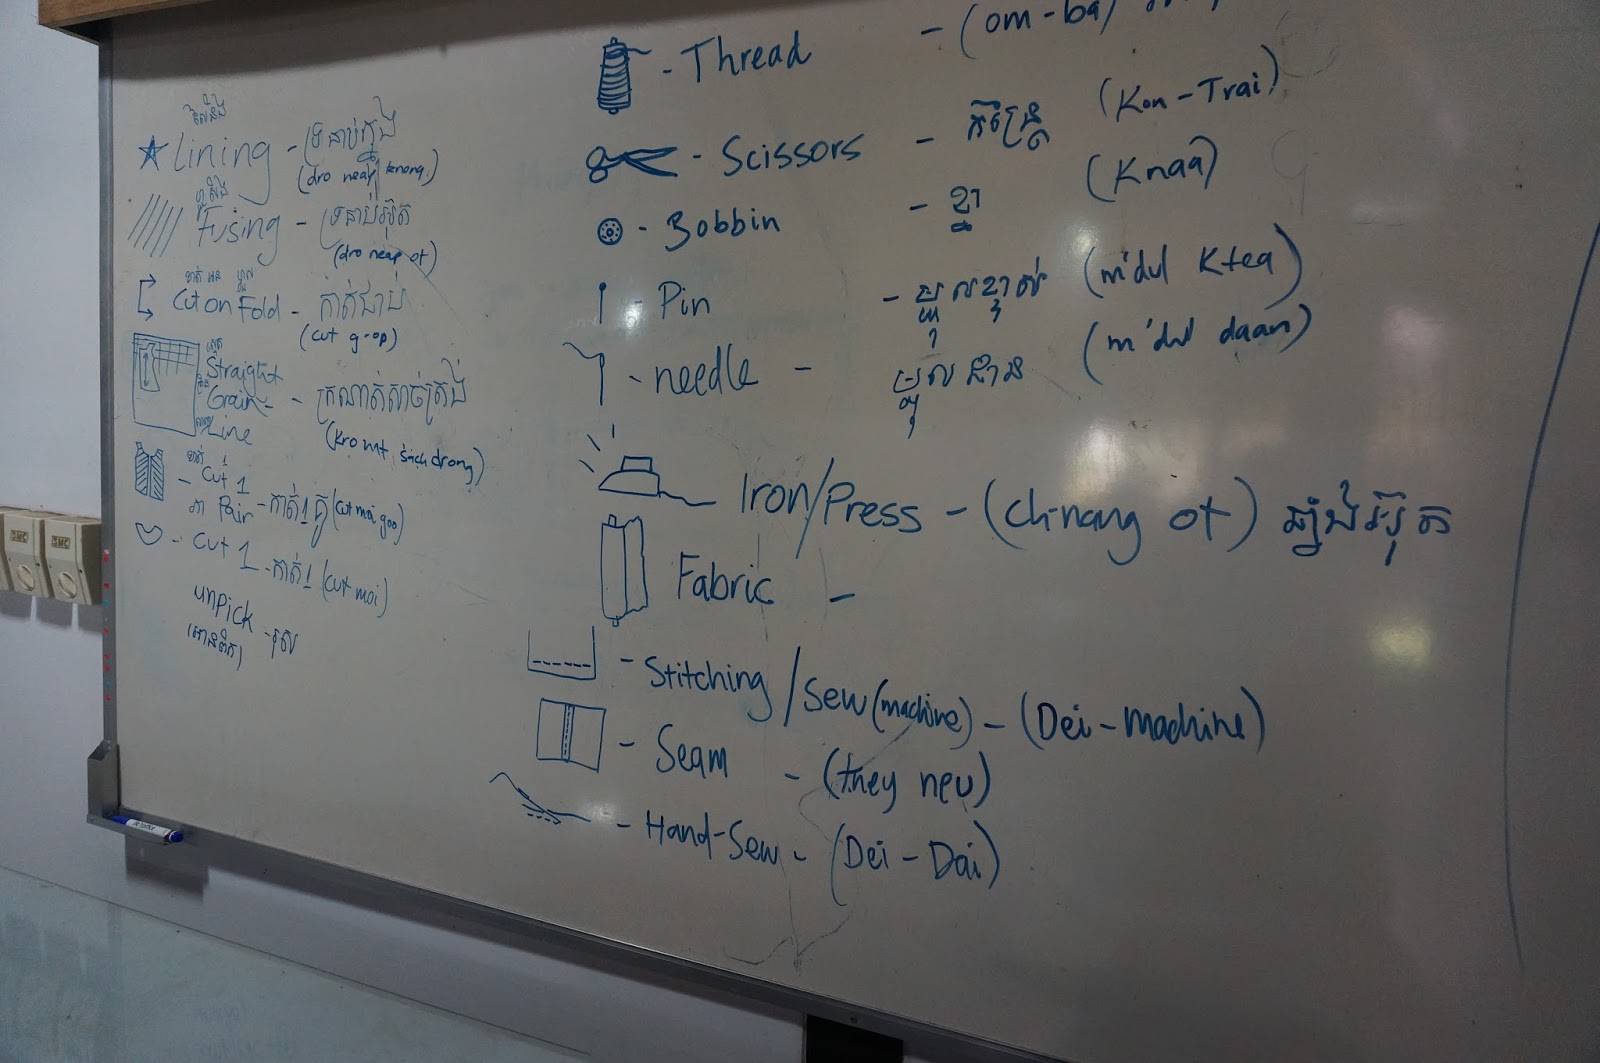 លែនីង
Lining - ទ្រនាប់ក្នុង
(dro neap knong)
ហ្វូស៊ីង
Fusing - ទ្រនាប់អ៊ុត
(dro neap ot)
ខាត់ អន ហ្វូល
Cut on Fold - កាត់ជាប់
(cut g-op)
Straight
Grain - ក្រណាត់សាច់ត្រង់
Line
(Kro nat sach drong)
ខាត់ 1
- Cut 1
ភា Pair - កាត់1គូ (cut moi goo)
- Cut 1 - កាត់1 (cut moi)
unpick - រុស
(អាន់ភិក)
- Thread - (om-ba)
- Scissors - កន្ត្រៃ (Kon-Trai)
- Bobbin - ខ្នា (Knaa)
- Pin - ម្ជុលខ្ទាស់ (m'dul Ktea)
- needle - ម្ជុលដាន (m'dul daan)
- Iron/Press - (ch-nang ot) ឆ្នាំងអ៊ុត
Fabric -
- Stitching / Sew (machine) - (Dei-machine)
- Seam - (they neu)
- Hand-Sew - (Dei-Dai)
SMC
SMC